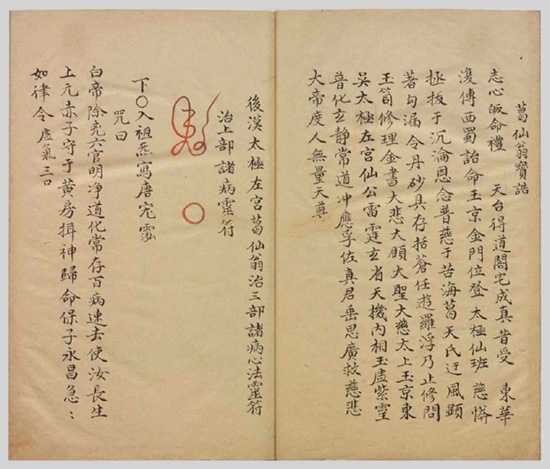 葛仙翁寶誥
志心皈命禮 天台得道閤宅成真昔受 東華
復傳西蜀詔命玉京金門位登 太極仙班 慈憐
拯拔于沉淪恩念普慈于苦海葛天氏迂風顯
著勾漏令丹砂具存括蒼任遊羅浮乃止修問
玉笥修理金書大悲大願大聖大慈太上玉京東
吳太極左宮仙公雷霆玄省天機內相玉虛紫靈
普化玄靜常道冲應孚佑真君垂恩廣救慈悲
大帝度人無量天尊
後漢太極左宮葛仙翁治三部諸病心法靈符
治上部諸病靈符
下〇入祖炁寫唐宄雯
咒曰
白帝除堯六官明净道化常存百病速去使汝長生
上元赤子守于黄房揖神歸命保子永昌急〻
如律令 虛氣三口